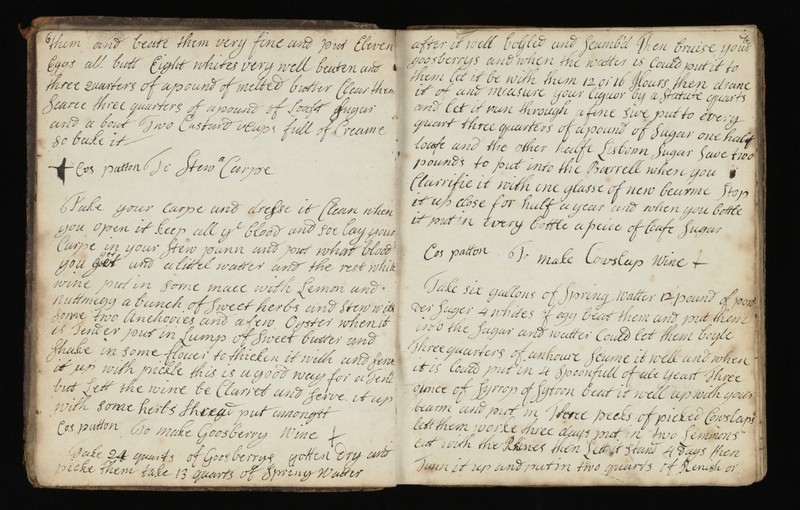 6
them and beate them very fine and put Eleven
Eggs all butt Eight whites very well beaten and
three quarters of a pound of melted butter Clear then
Searce three quarters of a pound of Loafe Sugar
and a bout Two Custard Cups full of Creame
so bake it
Cos patton To Stew a Carpe
Take your carpe and dresse it Clean when
you open it keep all ye blood and soe lay your
Carpe in your Stew pann and put what blood
you get and a littel watter and the rest whit
wine put in some mace with Lemon and
nuttmegg a bunch of Sweet herbs and Stew with
some two Anchovies and a few Oyster when it
is Tender put in Lump of Sweet butter and
Shake in some flower to thicken it with and Serve
it up with pickle this is a good way for a Tench
but Lett the wine be Clarret and Serve it up
with some herbs Shread put amongst
Cos patton To make Goosberry Wine
Take 24 quarts of Goosberrys gotten Dry and
picke them take 13 quarts of Spring Watter
after it well boyled and Scumbd Then bruise your
goosberrys and when the watter is Could put it to
them let it be with them 12 or 16 Hours then drane
it of and measure your liquor by a Statute quarts
and let it run through a fine Sive put to every
quart three quarters of a pound of Sugar one half
loafe and the other halfe Lisbonn Sugar Save two
pounds to put into the Barrell when you
Clarrifie it with one glasse of new bearme Stop
it up close for half a year and when you bottle
it put in Every bottle a peice of loafe Sugar
Cos patton To make Cowslap Wine
Take six gallons of Spring Watter 12 pound of pow
der Suger 4 whites of egg beat them and put them
into the Sugar and watter Could let them boyle
three quarters of an houre scume it well and when
it is Could put in 4 Spoonfull of ale yeast Three
ounce of Syrrop of Sytron beat it well up with your
bearm and put in Three pecks of picked Cowslaps
lett them worke three days put in two Lemmons
Cut with the Rhines then Lett it Stand 4 Days then
Tunn it up and put in two quarts of Renish or